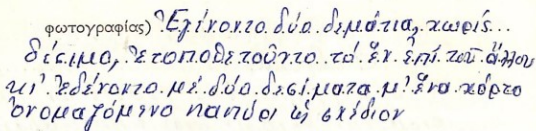 φωτογραφίας) Ἐγίνοντο δύο δεμάτια, χωρὶς...
δέσιμο, ἐτοποθετοῦντο τό ἕν ἐπί τοῦ ἄλλου
κι' ἐδένοντο μέ δύο δεσίματα μ' ἕνα χόρτο
ὀνομαζόμενο παπύρι ἤ σχέδιον